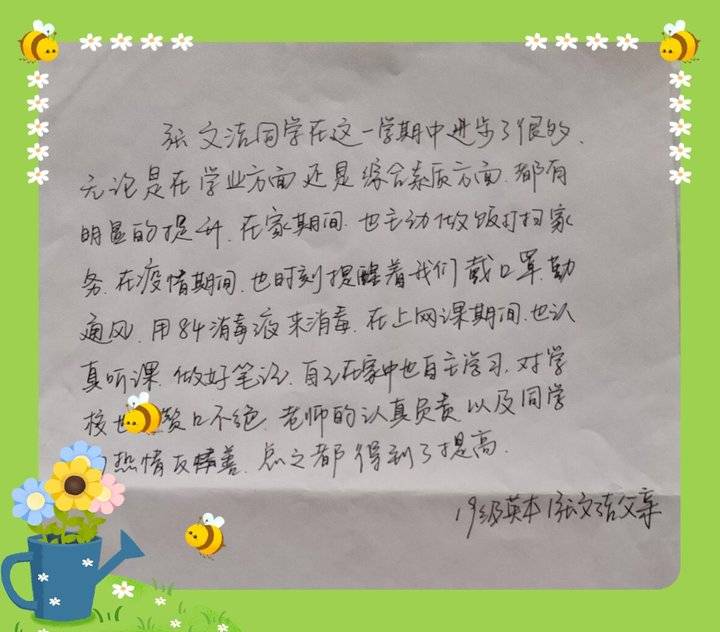 张文洁同学在这一学期中进步了很的、
无论是在学业方面还是综合素质方面、都有
明显的提升、在家期间、也主动做饭打扫家
务、在疫情期间、也时刻提醒着我们戴口罩、勤
通风、用84消毒液来消毒、在上网课期间、也认
真听课、做好笔记、自己在家中也自主学习、对学
校也赞口不绝、老师的认真负责、以及同学
热情友善、总之都得到了提高、
19级英本1张文洁父亲